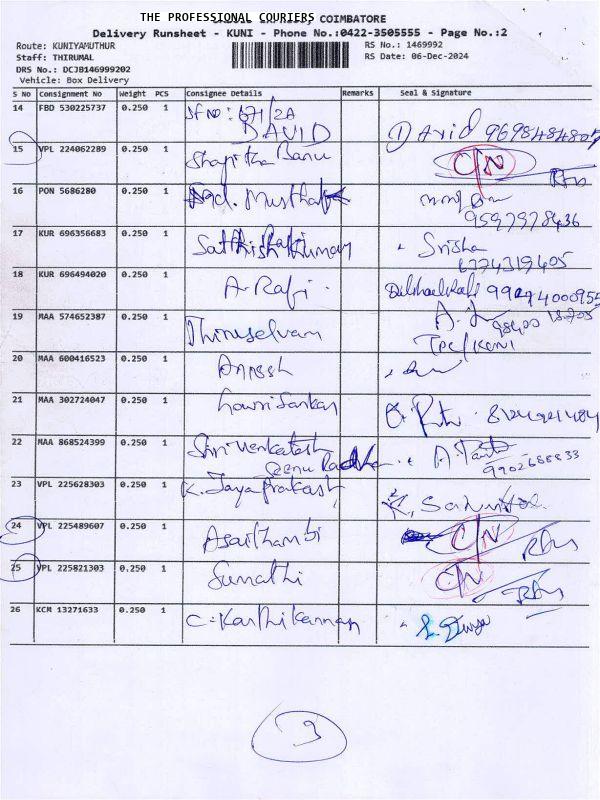 THE PROFESSIONAL COURIERS COIMBATORE
Delivery Runsheet - KUNI - Phone No.:0422-3505555 - Page No.:2
Route: KUNIYAMUTHUR RS No.: 1469992
Staff: THIRUMAL RS Date: 06-Dec-2024
DRS No.: DCJB146999202
Vehicle: Box Delivery
S No Consignment No Weight PCS Consignee Details Remarks Seal & Signature
14 FBD 530225737 0.250 1 SF NO: 671/2A
DAVID David
15 VPL 224062289 0.250 1 Banu C/N
16 PON 5686280 0.250 1
9597978436
17 KUR 696356683 0.250 1 Sathish Kumar Srisha
6374319405
18 KUR 696494020 0.250 1 A. Rafi
19 MAA 574652387 0.250 1 Thiruselvam
20 MAA 600416523 0.250 1
21 MAA 302724047 0.250 1 Gowri Sankar
22 MAA 868524399 0.250 1 Shri Venkatesh
9902688833
23 VPL 225628303 0.250 1 K. Jayaprakash
24 VPL 225489607 0.250 1 Asaithambi C/N
25 VPL 225821303 0.250 1 Sumathi C/N
26 KCM 13271633 0.250 1 C. Karthikannan
3